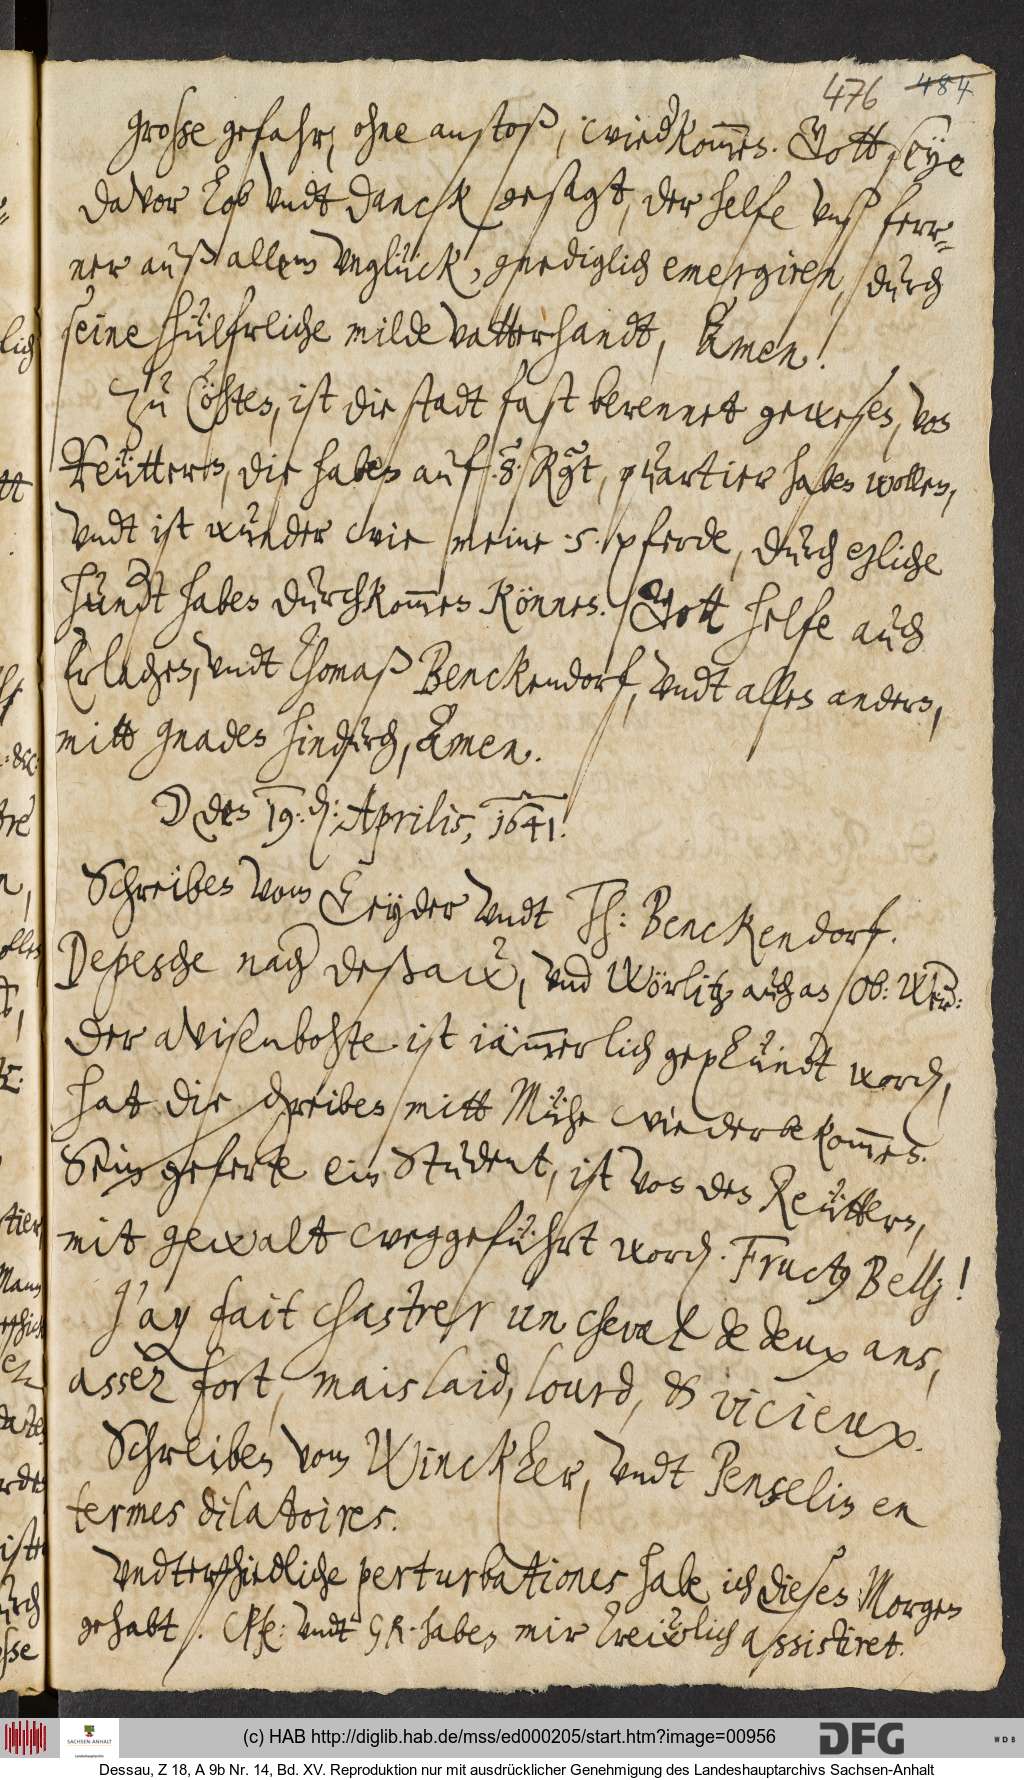 476 484
große gefahr, ohne anstoß, wiedkom̅en. Gott seye
davor Lob vndt danck gesagt, der helfe vnß ferr=
ner auß allem vnglück, gnediglich emergiren, durch
seine hülfreiche milde vatterhandt, Amen!
Zu Cöhten, ist die stadt fast berennet gewesen, von
Reüttern, die haben auf :8: Rgt, quartier haben wollen,
vndt ist wunder wie meine :5: pferde, durch ezliche
hundt haben durchkom̅en können. Gott helfe auch
Erlachen, vndt Thomaß Benckendorf, vndt allen andern,
mitt gnaden hindurch, Amen.
den 19: d: Aprilis, 1641.
Schreiben vom Leyder vndt Th: Benckendorf.
Depesche nach Deßaw, vnd Wörlitz auch an Ob: Werd:
Der avisenbohte ist iäm̅erlich geplündt word,
hat die schreiben mitt Mühe wiederbekom̅en.
Sein geferte ein Student, ist von den Reüttern,
mit gewalt weggeführt word. Fructq Bellj!
J'ay fait chastrer un cheval de deux ans,
assez fort, mais laid, lourd, & vicieux.
Schreiben vom Winckler, vndt Penselin en
termes dilatoires.
vndterschiedliche perturbationes habe ich diesen Morgen
gehabt. vndt GR. haben mir treẅlich assistiret.
lich
tier
(c) HAB http://diglib.hab.de/mss/ed000205/start.htm?image=00956
SACHSEN-ANHALT
DFG
WDB
Dessau, Z 18, A 9b Nr. 14, Bd. XV. Reproduktion nur mit ausdrücklicher Genehmigung des Landeshauptarchivs Sachsen-Anhalt